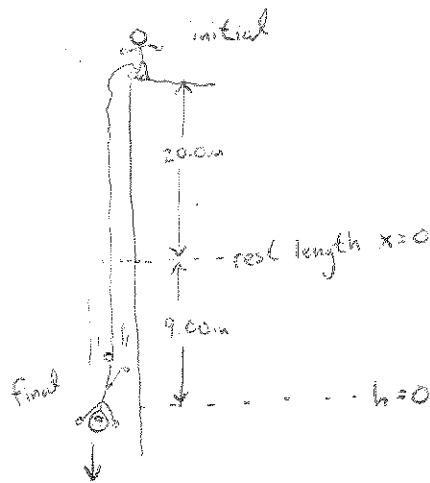 initial
20.0m
rest length x=0
9.00m
final
h=0